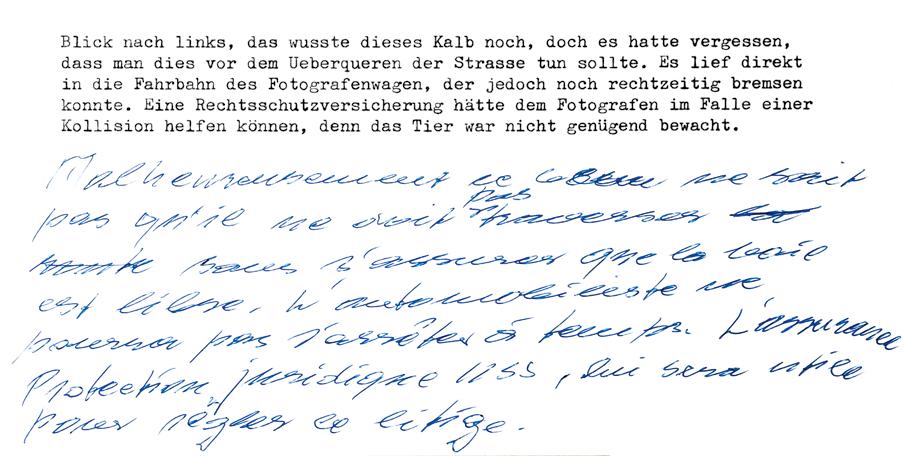 Blick nach links, das wusste dieses Kalb noch, doch es hatte vergessen,
dass man dies vor dem Ueberqueren der Strasse tun sollte. Es lief direkt
in die Fahrbahn des Fotografenwagen, der jedoch noch rechtzeitig bremsen
konnte. Eine Rechtsschutzversicherung hätte dem Fotografen im Falle einer
Kollision helfen können, denn das Tier war nicht genügend bewacht.
Malheureusement ce ne sait
pas
pas qu'il ne doit traverser la
route sans s'assurer que la voie
est libre. L'automobiliste ne
pourra pas s'arrêter à temps. L'assurance
Protection juridique, lui sera utile
pour régler ce litige.